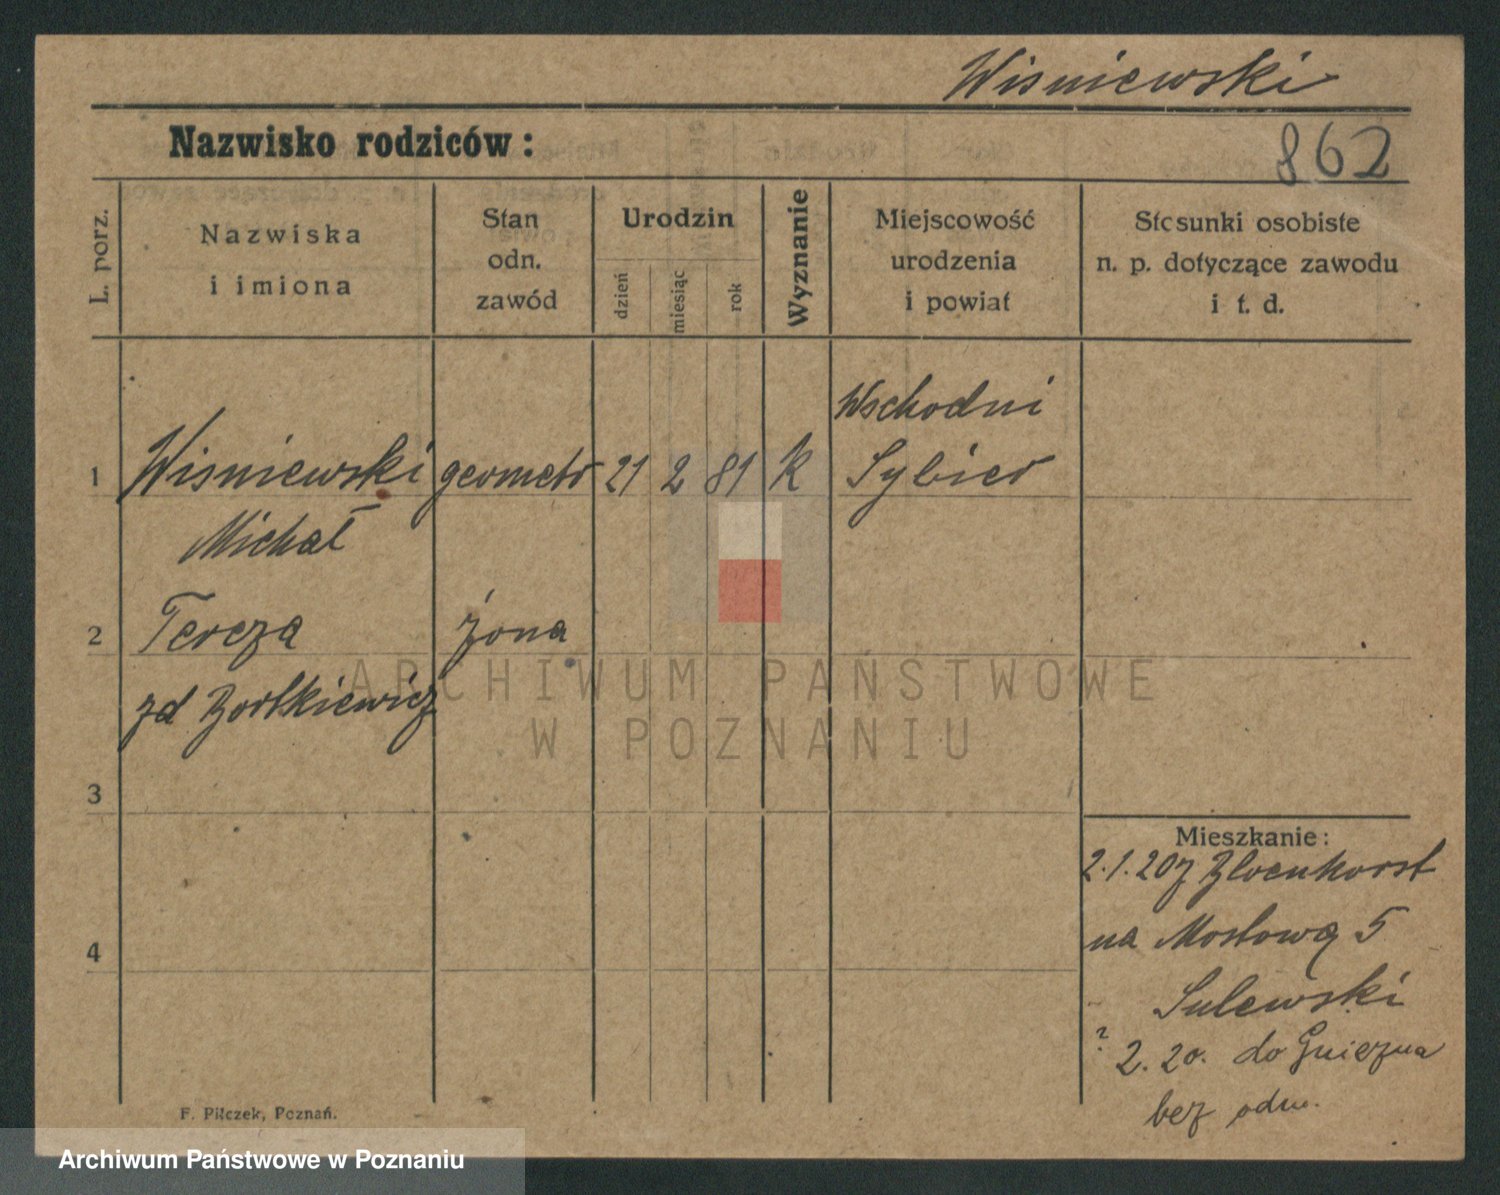 Wisniewski
Nazwisko rodziców:
862
L. porz.
Nazwiska
i imiona
Stan
odn.
zawód
Urodzin
dzień
miesiąc
rok
Wyznanie
Miejscowość
urodzenia
i powiat
Stosunki osobiste
n. p. dotyczące zawodu
i t. d.
Wschodni
1 Wisniewski geometr 21 2 81 k Sybier
Michał
2 Tereza żona
zd
3
Mieszkanie:
2.1.20 z
na Mostową 5
4
Sulewski
? 2. 20. do Gniezna
bez odm.
F. Pilczek, Poznań.
ARCHIWUM PAŃSTWOWE
W POZNANIU
Archiwum Państwowe w Poznaniu